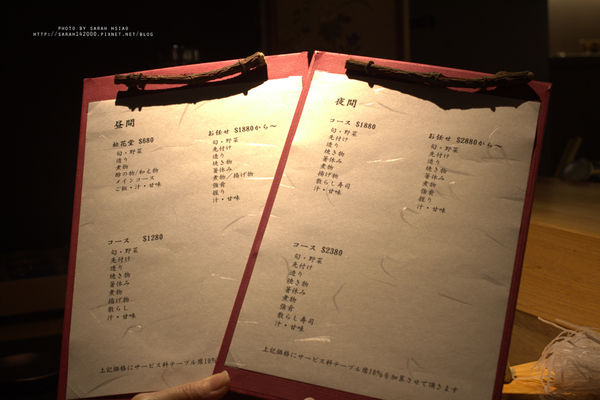 PHOTO BY SARAH HSIAO
HTTP://SARAH142000.PIXNET.NET/BLOG
昼間
松花堂 $680
旬・野菜
造り
煮物
酢の物/和え物
メインコース
ご飯・汁・甘味
お任せ $1880から～
旬・野菜
先付け
造り
焼き物
箸休み
煮物/揚げ物
強肴
握り
汁・甘味
コース $1280
旬・野菜
先付け
造り
焼き物
箸休み
煮物
揚げ物
散らし
汁・甘味
上記価格にサービス料テーブル席10%
夜間
コース $1880
旬・野菜
先付け
造り
焼き物
箸休み
煮物
揚げ物
散らし寿司
汁・甘味
お任せ $2880から～
旬・野菜
先付け
造り
焼き物
箸休み
煮物
強肴
握り
汁・甘味
コース $2380
旬・野菜
先付け
造り
焼き物
箸休み
煮物
強肴
散らし寿司
汁・甘味
上記価格にサービス料テーブル席10%を加算させて頂きます